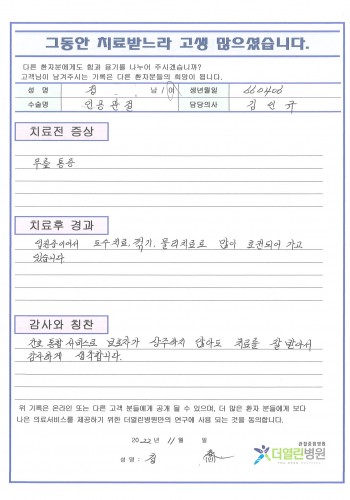 그동안 치료받느라 고생 많으셨습니다.
다른 환자분에게도 힘과 용기를 나누어 주시겠습니까?
고객님이 남겨주시는 기록은 다른 환자분들의 희망이 됩니다.
성 명 김 . . 남 / 여 생년월일 660406
수술명 인공관절 담당의사 김선규
치료전 증상
무릎 통증
치료후 경과
입원중이어서 도수치료, 꺾기, 물리치료로 많이 호전되어 가고
있습니다
감사와 칭찬
간호 통합 서비스로 보호자가 상주하지 않아도 치료를 잘 받아서
감사하게 생각합니다.
위 기록은 온라인 또는 다른 고객 분들에게 공개 될 수 있으며, 더 많은 환자 분들에게 보다
나은 의료서비스를 제공하기 위한 더열린병원만의 연구에 사용 되는 것을 동의합니다.
2022 년 11 월 일
관절종합병원
더열린병원
성 명 : 김